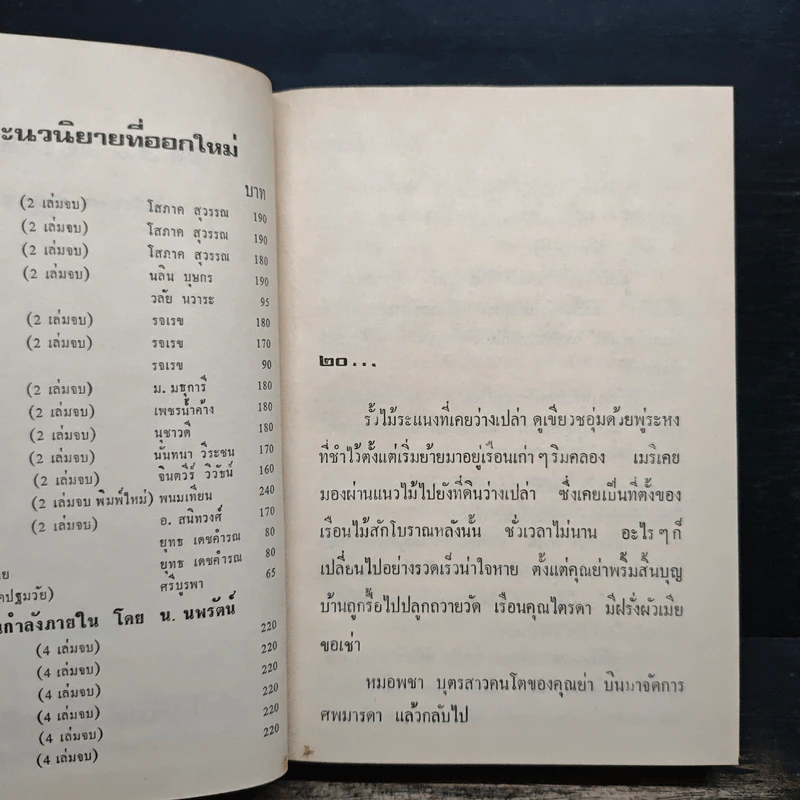 ะนวนิยายที่ออกใหม่
บาท
(2 เล่มจบ) โสภาค สุวรรณ 190
(2 เล่มจบ) โสภาค สุวรรณ 190
(2 เล่มจบ) โสภาค สุวรรณ 180
(2 เล่มจบ) นลิน บุษกร 190
วลัย นวาระ 95
(2 เล่มจบ) รจเรข 180
(2 เล่มจบ) รจเรข 170
รจเรข 90
(2 เล่มจบ) ม. มธุการี 180
(2 เล่มจบ) เพชรน้ำค้าง 180
(2 เล่มจบ) นุชาวดี 180
(2 เล่มจบ) นันทนา วีระชน 170
(2 เล่มจบ) จินตวีร์ วิวัธน์ 160
(2 เล่มจบ พิมพ์ใหม่) พนมเทียน 240
(2 เล่มจบ) อ. สนิทวงศ์ 170
ยุทธ เดชคำรณ 80
ย ยุทธ เดชคำรณ 80
คปฐมวัย) ศรีบูรพา 65
นกำลังภายใน โดย น. นพรัตน์
(4 เล่มจบ) 220
(4 เล่มจบ) 220
(4 เล่มจบ) 220
(4 เล่มจบ) 220
(4 เล่มจบ) 220
(4 เล่มจบ)
๒๐...
รั้วไม้ระแนงที่เคยว่างเปล่า ดูเขียวชอุ่มด้วยพู่ระหง
ที่ชำไว้ตั้งแต่เริ่มย้ายมาอยู่เรือนเก่าๆริมคลอง เมริเคย
มองผ่านแนวไม้ไปยังที่ดินว่างเปล่า ซึ่งเคยเป็นที่ตั้งของ
เรือนไม้สักโบราณหลังนั้น ชั่วเวลาไม่นาน อะไรๆก็
เปลี่ยนไปอย่างรวดเร็วน่าใจหาย ตั้งแต่คุณย่าพริ้มสิ้นบุญ
บ้านถูกรื้อไปปลูกถวายวัด เรือนคุณไตรดา มีฝรั่งผัวเมีย
ขอเช่า
หมอพชา บุตรสาวคนโตของคุณย่า บินมาจัดการ
ศพมารดา แล้วกลับไป